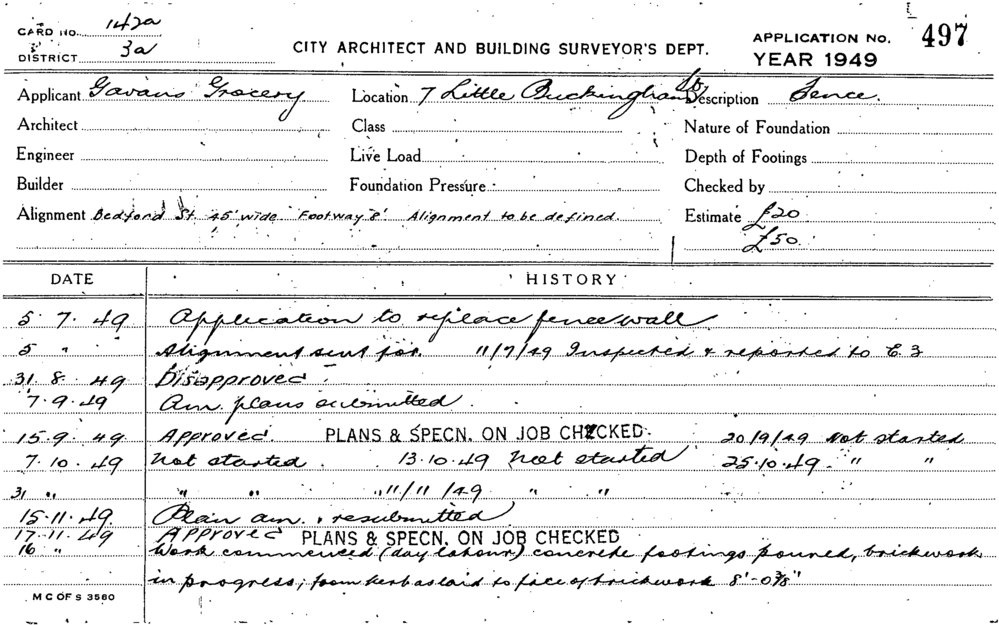 CARD NO. 142a
DISTRICT 3a
CITY ARCHITECT AND BUILDING SURVEYOR'S DEPT.
APPLICATION NO. 497
YEAR 1949
Applicant Gavans Grocery Location 7 Little Buckingham St. Description Fence.
Architect Class Nature of Foundation
Engineer Live Load Depth of Footings
Builder Foundation Pressure Checked by
Alignment Bedford St. 45' wide Footway 8' Alignment to be defined. Estimate £20
£50
DATE HISTORY
5 7. 49 Application to replace fence wall
5 " Alignment sent for. 11/7/49 Inspected & reported to C. 3
31. 8. 49 Disapproved
7. 9. 49 Am. plans submitted.
15. 9. 49 Approved. PLANS & SPECN. ON JOB CHECKED. 20/9/49 Not started
7. 10. 49 Not started. 13. 10. 49 Not started 25. 10. 49 " "
31 " " " 11/11/49 " "
15. 11. 49 Plan am. & resubmitted
17. 11. 49 Approved PLANS & SPECN. ON JOB CHECKED
16 " Work commenced (day labour) concrete footings poured, brickwork
in progress; from kerb as laid to face of brickwork 8'-0⅜"
M C OF S 3580